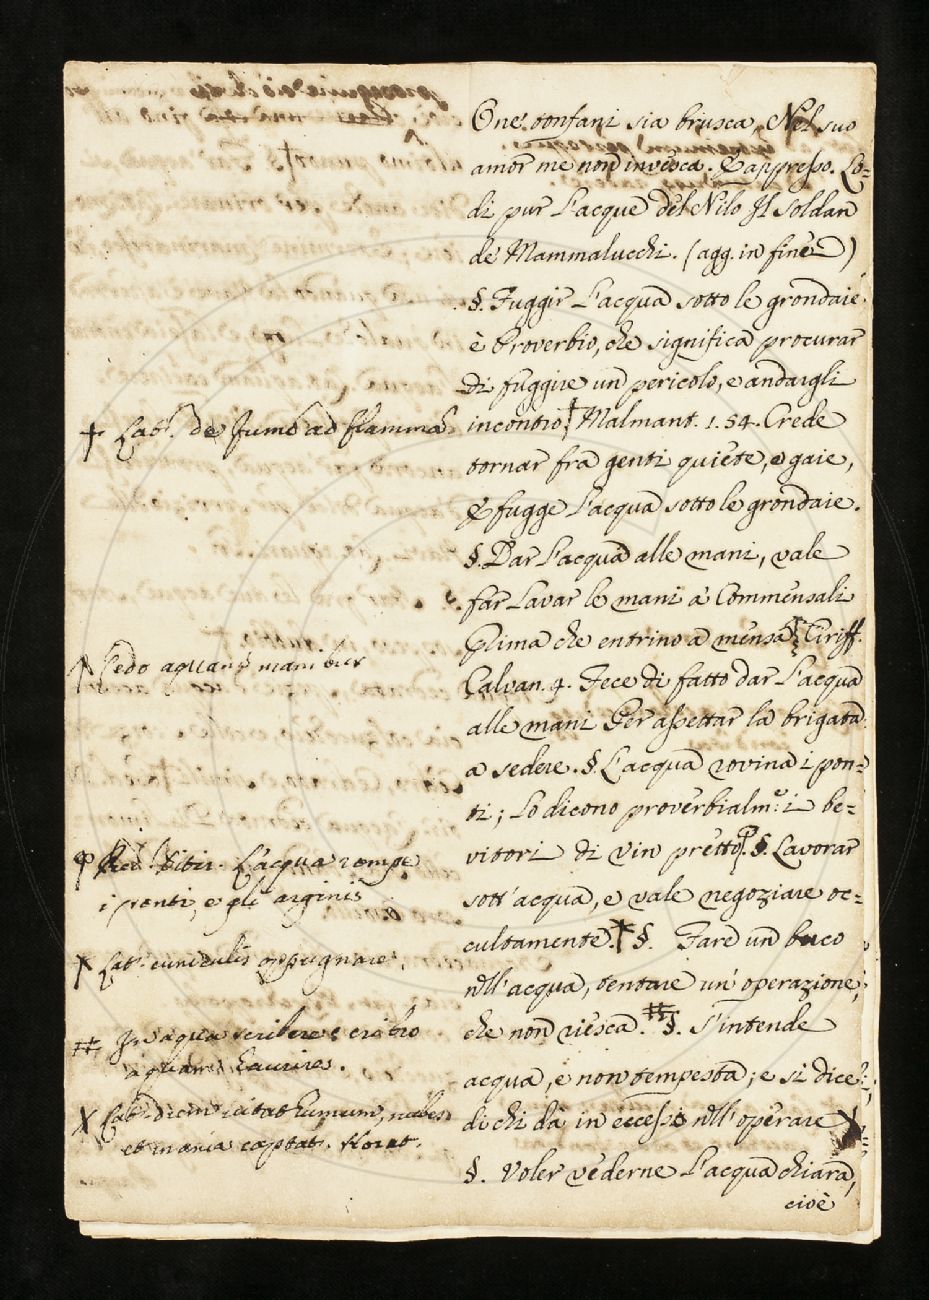 One' confani sia brusca, Nel suo
amor me non invesca. & appresso. Lo-
di pur l'acque del Nilo Il Soldan
de' Mammalucchi. (agg. in fine)
§. Fuggir l'acqua sotto le grondaie
è Proverbio, che significa procurar
di fuggire un pericolo, e andargli
incontro † Malmant. 1. 54. Crede
tornar fra genti quiete, e gaie,
E fugge l'acqua sotto le grondaie.
§. Dar l'acqua alle mani, vale
far lavar le mani a' Commensali
Prima che entrino a mensa Ciriff.
Calvan. 4. Fece di fatto dar l'acqua
alle mani Per assettar la brigata
a sedere. §. L'acqua rovina i pon-
ti; lo dicono proverbialm.e i be-
vitori di vin pretto. §. Lavorar
sott'acqua, e vale negoziare oc-
cultamente. §. Fare un buco
nell'acqua, tentare un'operazione,
che non riesca. ⌗ §. S'intende
acqua, e non tempesta; e si dice
di chi dà in eccesso nell'operare X
§. Voler vederne l'acqua chiara,
cioè
† Lat. de fumo ad flammam
Cedo aquam manibus
Red. Ditir. L'acqua rompe
i ponti, e gli argini
Lat. cuniculis oppugnare.
⌗ In aqua scribere; cribro
aquam haurire.
X Lat. dum vitat humum, nubes
et inania captat. Horat.